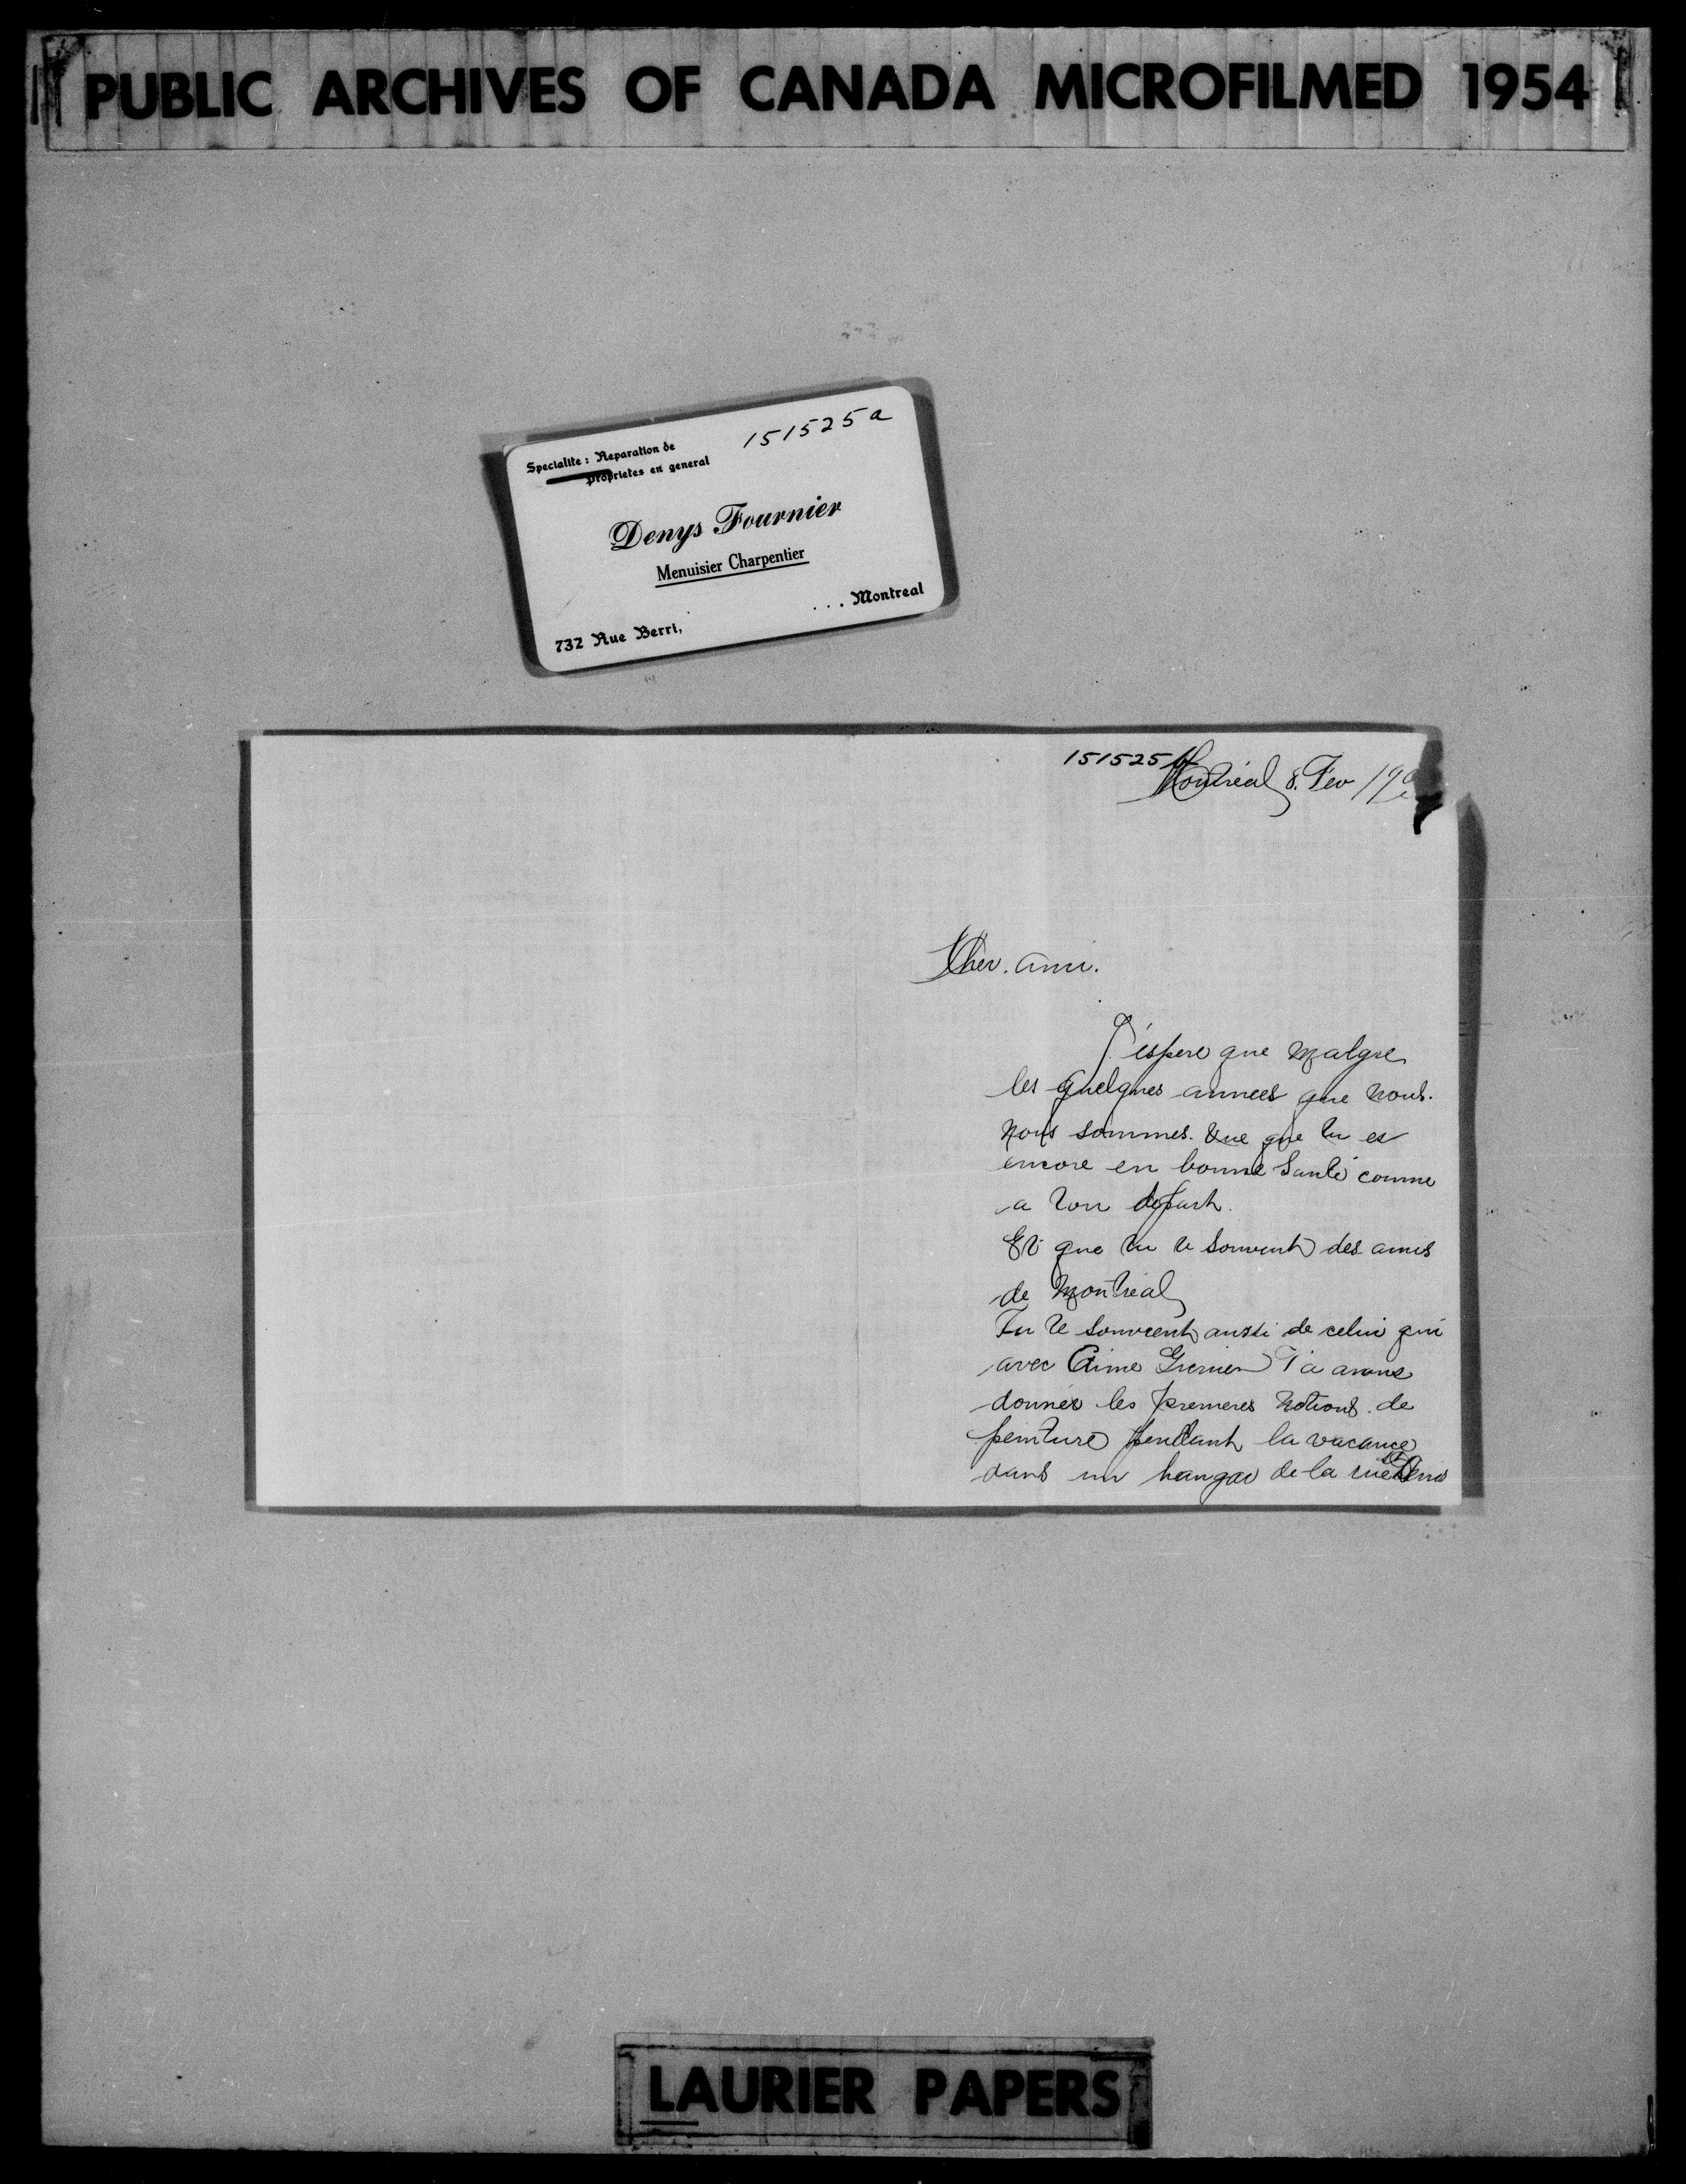 PUBLIC ARCHIVES OF CANADA MICROFILMED 1954
151525a
Specialite : Reparation de
proprietes en general
Denys Fournier
Menuisier Charpentier
732 Rue Berri, ... Montreal
151525b
Montréal 8. Fev 190
Cher. ami.
J'éspere que malgre
les quelques annees que nous.
nous sommes. vue que tu es
encore en bonne santé comme
a ton depart.
Et que tu te souvent des amis
de Montréal
Tu te souvient aussi de celui qui
avec Aime Grenier t'a avons
donnés les premeres notions de
peinture pendant la vacance
dans un hangar de la rue St Denis
LAURIER PAPERS